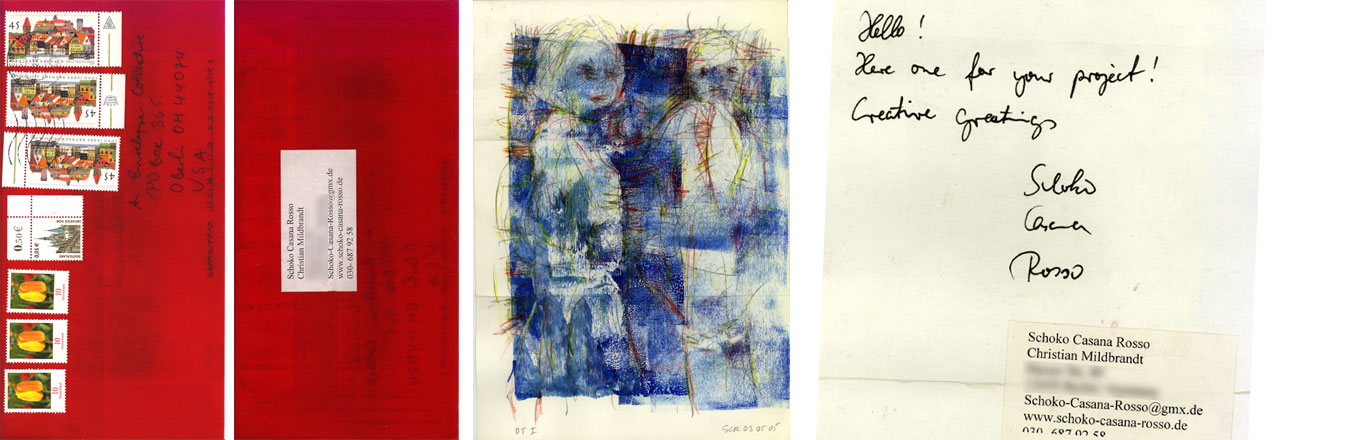 45
45
45
0,50 €
0,05 €
DEUTSCHLAND
10
10
10
An Envelope Collective
PO Box 365
Oberlin OH 44074
USA
Schoko Casana Rosso
Christian Mildbrandt
Schoko-Casana-Rosso@gmx.de
www.schoko-casana-rosso.de
030- 687 92 58
OT I
SCR 03 05 05
Hello!
Here one for your project!
Creative greetings
Schoko
Casana
Rosso
Schoko Casana Rosso
Christian Mildbrandt
Schoko-Casana-Rosso@gmx.de
www.schoko-casana-rosso.de
030- 687 92 58